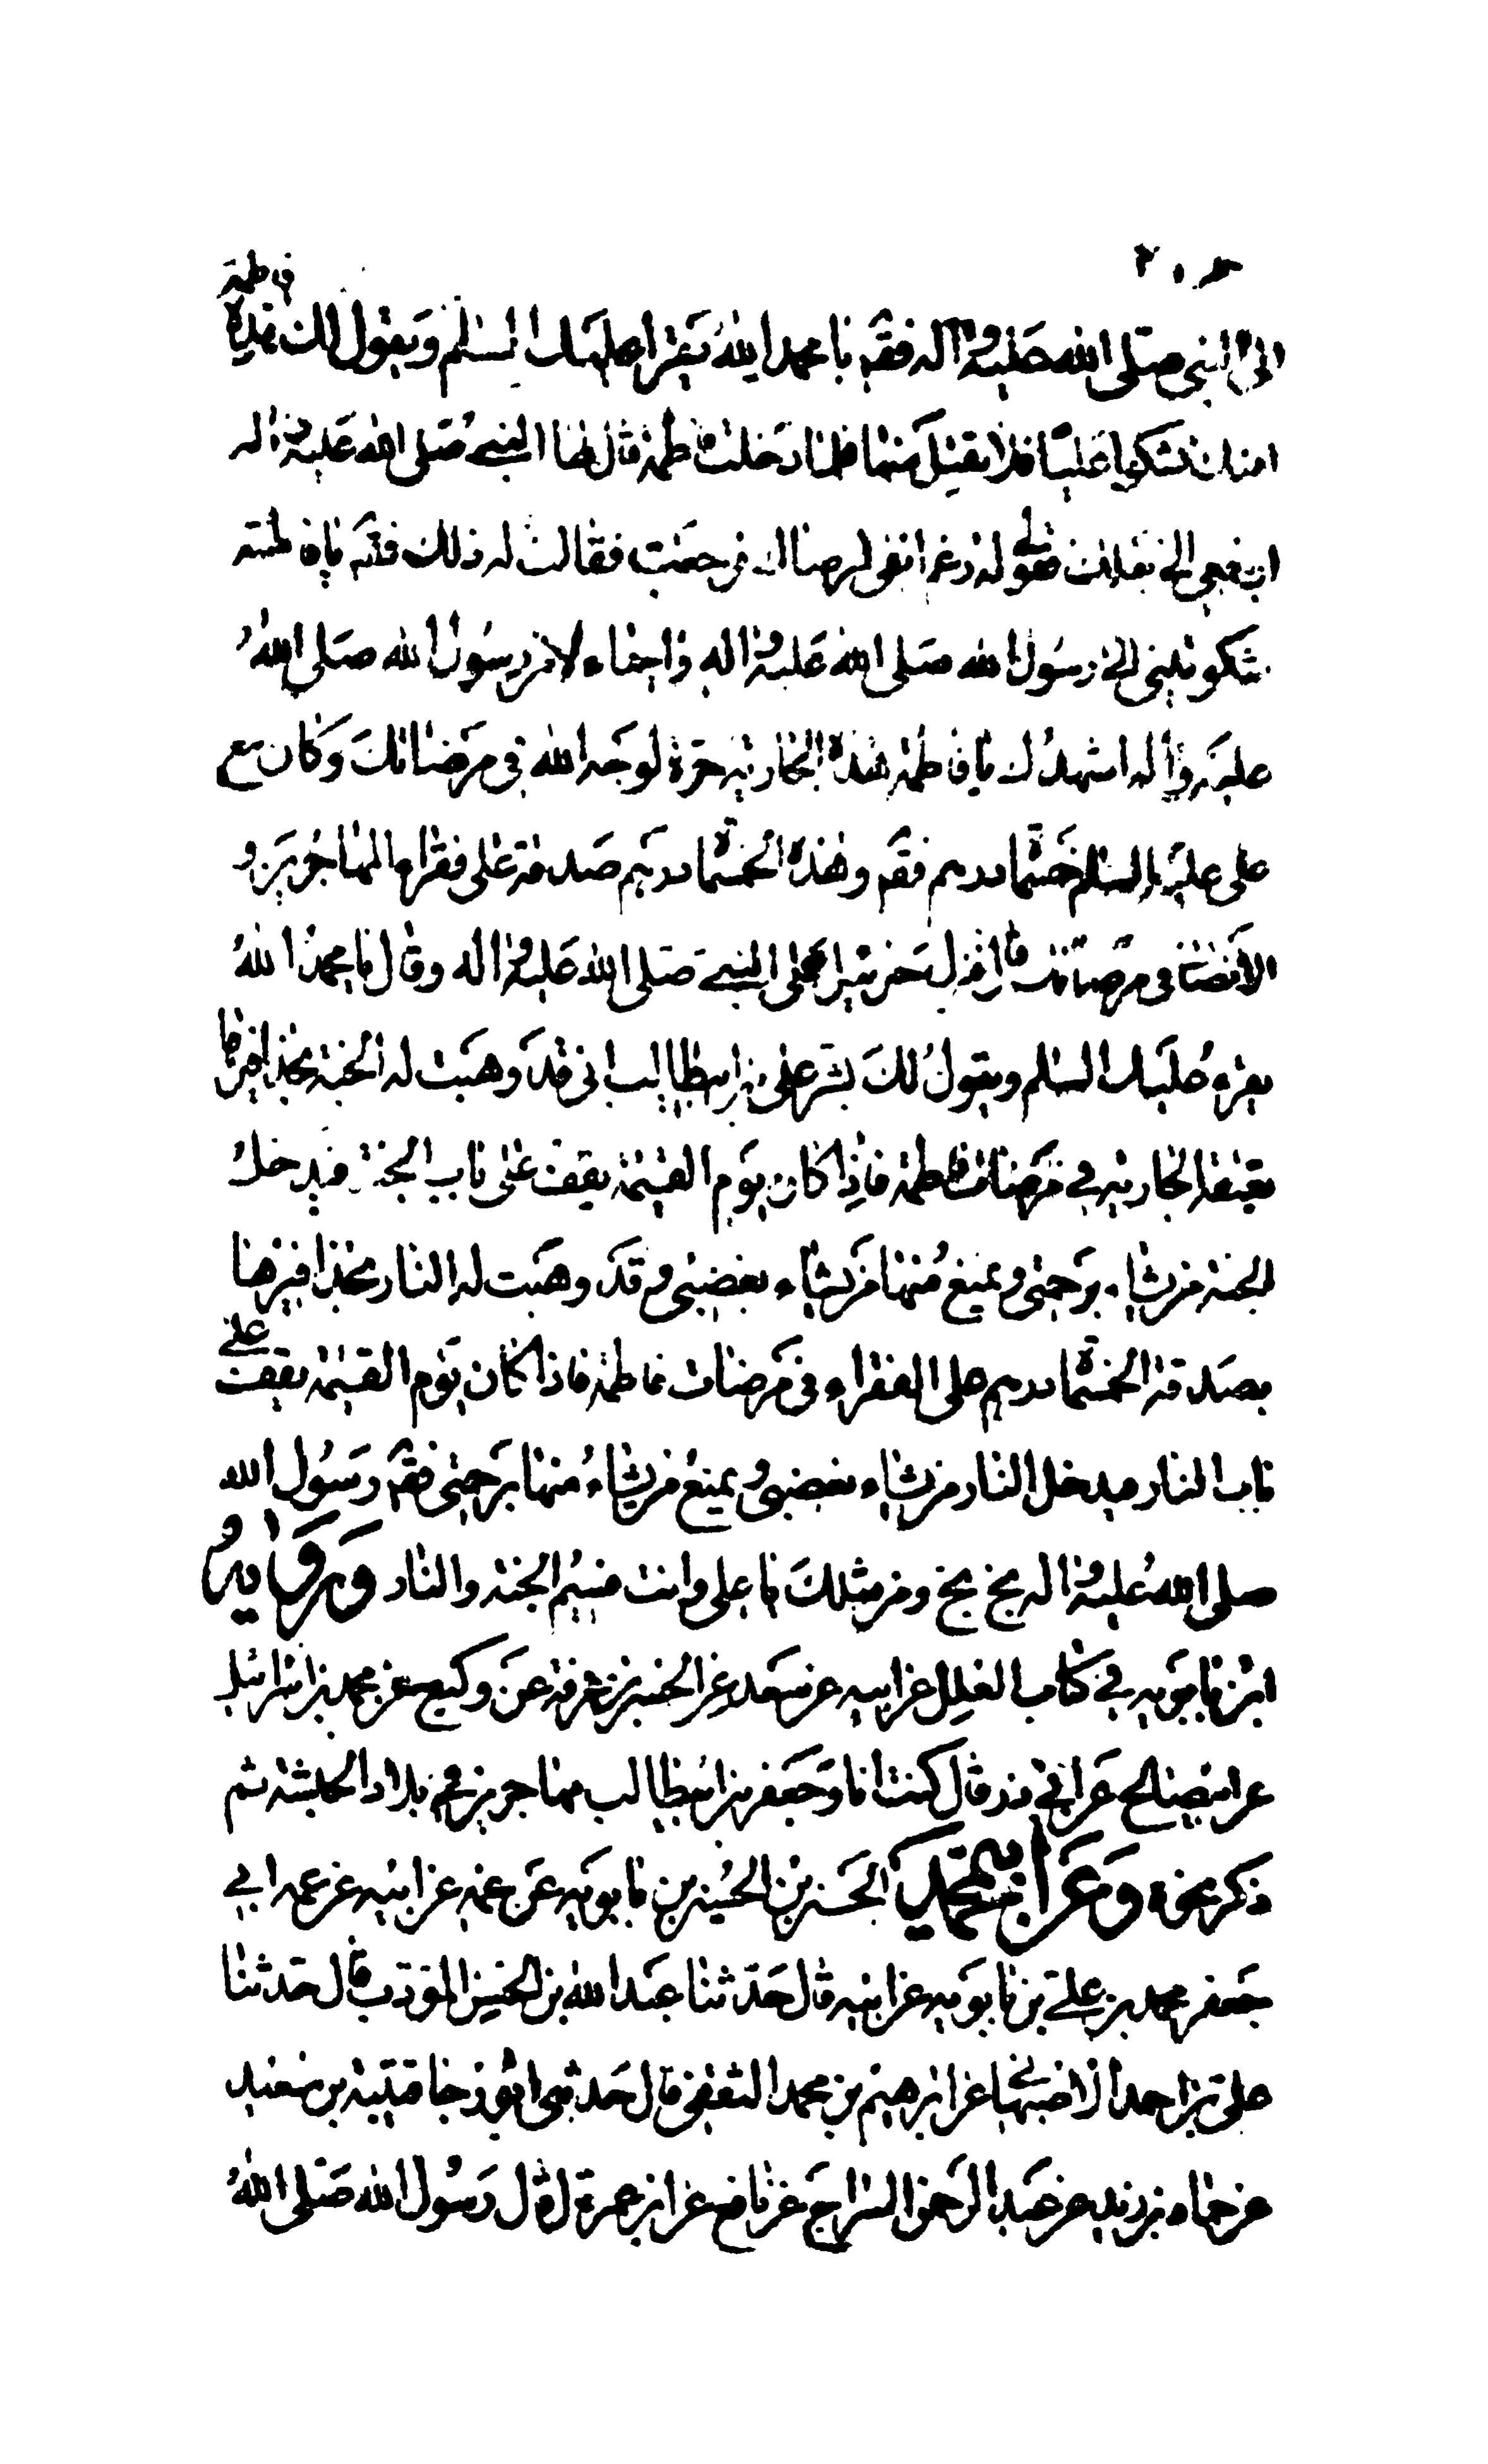 ٢٠٨
الى النبي صلى الله عليه واله فقال يا محمد الله يقرا عليك السلم ويقول لك هذه فاطمة
اتتك تشكو عليا فلا تقبل منها فلما دخلت فاطمة قال لها النبي صلى الله عليه واله
ارجعي الى بعلك فقولي له رغم انفي لرضاك فرجعت فقالت له ذلك فقال يا فاطمة
شكوتيني الى رسول الله صلى الله عليه واله واحياء لا من رسول الله صلى الله
عليه واله اشهدك يا فاطمة هذه الجارية حرة لوجه الله في مرضاتك وكان مع
على عليه السلم خمسمائة درهم فقال وهذه الخمسمائة درهم صدقة على فقراء المهاجرين و
الانصار في مرضاتك قال فنزل جبرئيل على النبي صلى الله عليه واله وقال يا محمد الله
يقرء عليك السلم ويقول لك بشر علي بن ابيطالب اني قد وهبت له الجنة بحذافيرها
بعتقه الجارية في مرضات فاطمة فاذا كان يوم القيمة يقف على باب الجنة فيدخل
الجنة من يشاء برحمتي ويمنع منها من يشاء بغضبي وقد وهبت له النار بحذافيرها
بصدقته الخمسمائة درهم على الفقراء في مرضات فاطمة فاذا كان يوم القيمة يقف على
باب النار فيدخل النار من يشاء بغضبي ويمنع من يشاء منها برحمتي فقال رسول الله
صلى الله عليه واله بخ بخ ومن مثلك يا علي وانت قسيم الجنة والنار ورواه
ابن بابويه في كتاب العلل عن ابيه عن سعد عن الحسن بن عرفة عن وكيع عن محمد بن اسرائيل
عن ابي صالح عن ابي ذر قال كنت انا وجعفر بن ابيطالب مهاجرين في بلاد الحبشة ثم
ذكر نحوه وعن ابي محمد الحسن بن الحسين بن بابويه عن عمه عن ابيه عن عمه ابي
جعفر محمد بن علي بن بابويه عن ابيه قال حدثنا عبد الله بن الحسين المؤدب قال حدثنا
علي بن احمد الاصبهاني عن ابرهيم بن محمد الثقفي قال حدثني ابو رجا قتيبة بن سعيد
عن حماد بن زيد عن عبد الرحمن السراج عن نافع عن ابن عمر قال قال رسول الله صلى الله